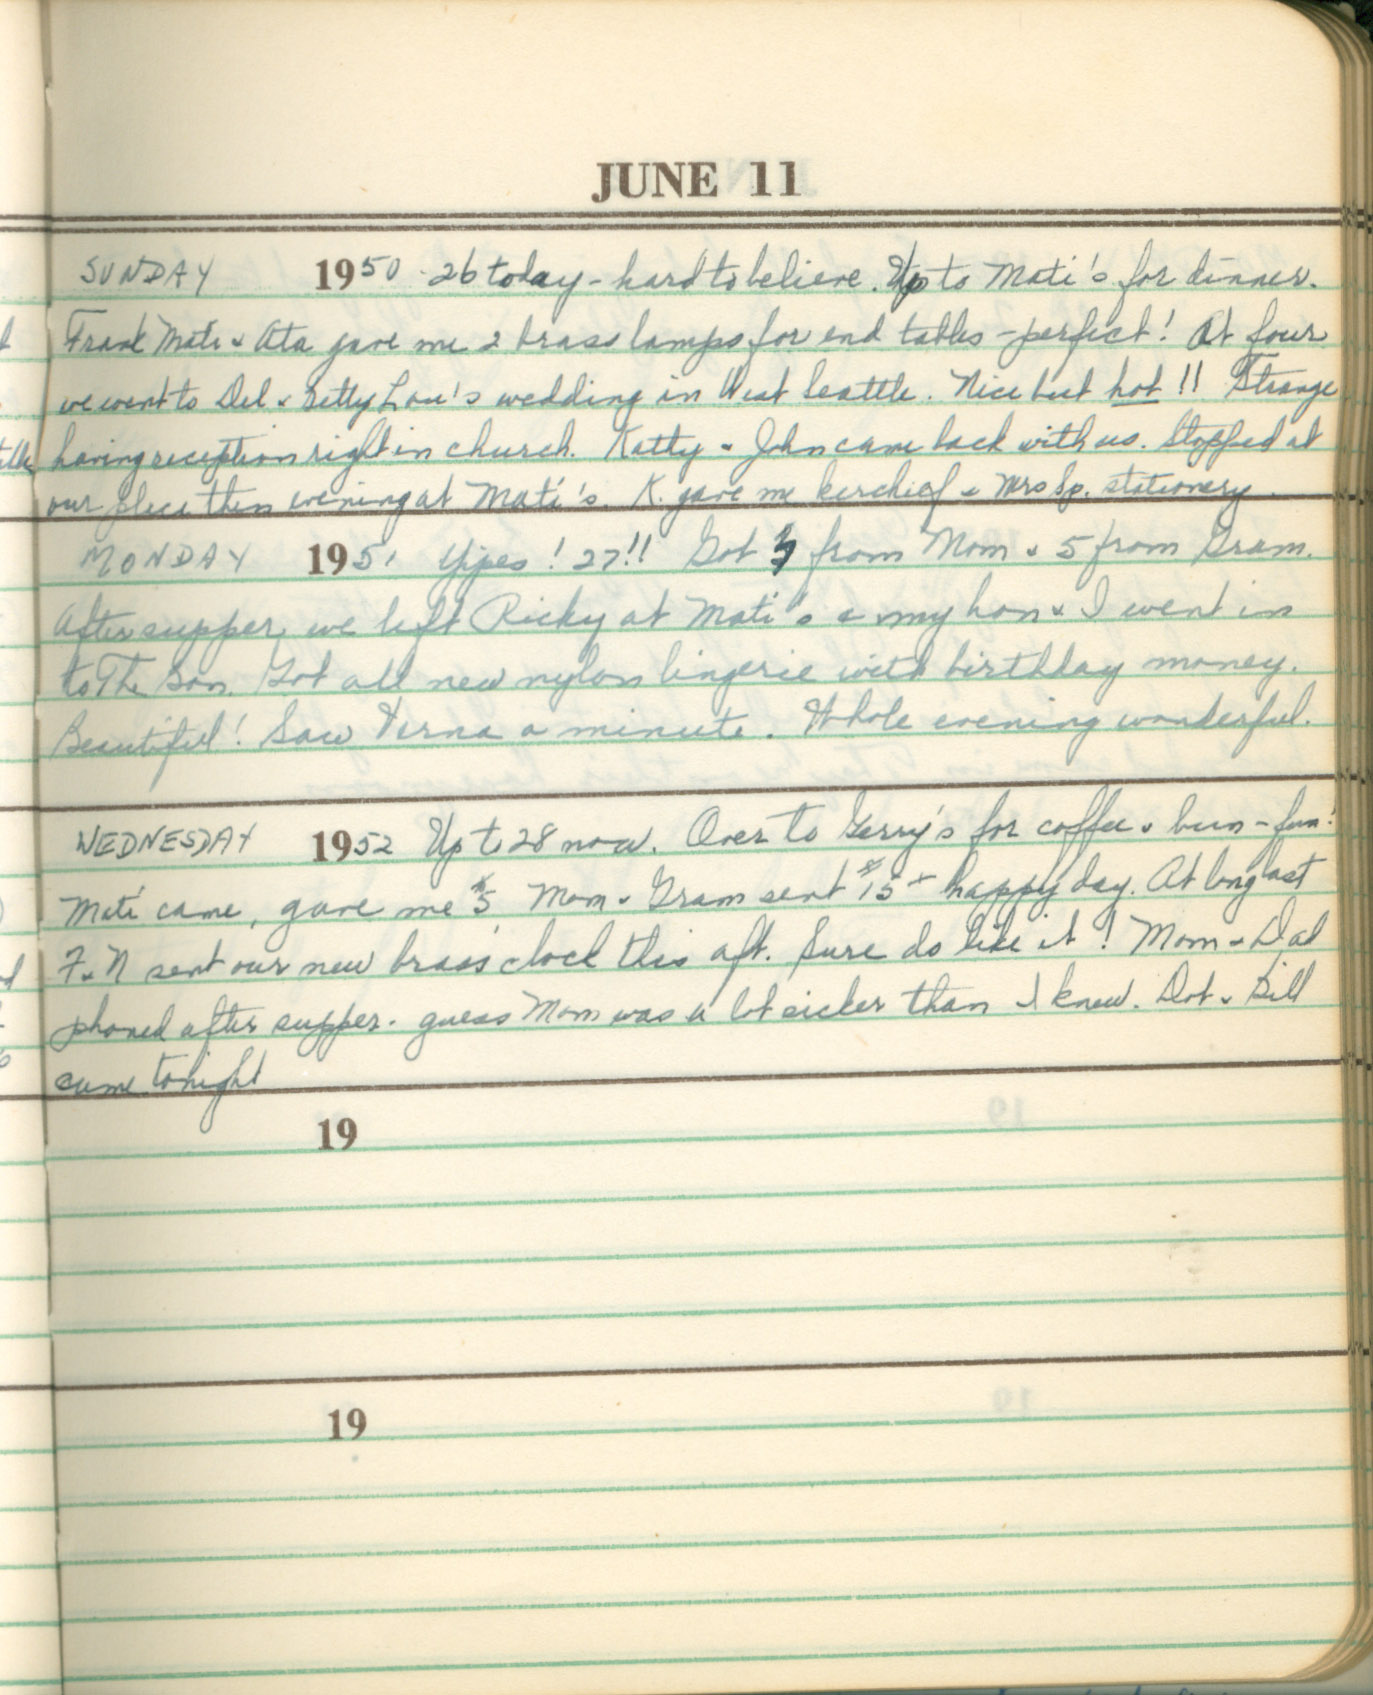 JUNE 11
SUNDAY 1950 26 today - hard to believe. Up to Mati's for dinner.
Frank Mati & Ata gave me 2 brass lamps for end tables - perfect! At four
we went to Del & Betty Lou's wedding in West Seattle. Nice but hot!! Strange
having reception right in church. Katty & John came back with us. Stopped at
our place then evening at Mati's. K. gave me kerchief & Mrs Sp. stationery.
MONDAY 1951 Yipes! 27!! Got from Mom & 5 from Gram.
After supper we left Ricky at Mati's & my hon & I went in
to The Bon. Got all new nylon lingerie with birthday money.
Beautiful! Saw Verna a minute. Whole evening wonderful.
WEDNESDAY 1952 Up to 28 now. Over to Gerry's for coffee & bun - fun!
Mati came, gave me $5 Mom & Gram sent $15 - happy day. At long last
F & N sent our new brass clock this aft. Sure do like it! Mom & Dad
phoned after supper. guess Mom was a lot sicker than I knew. Dot & Bill
came tonight
19
19